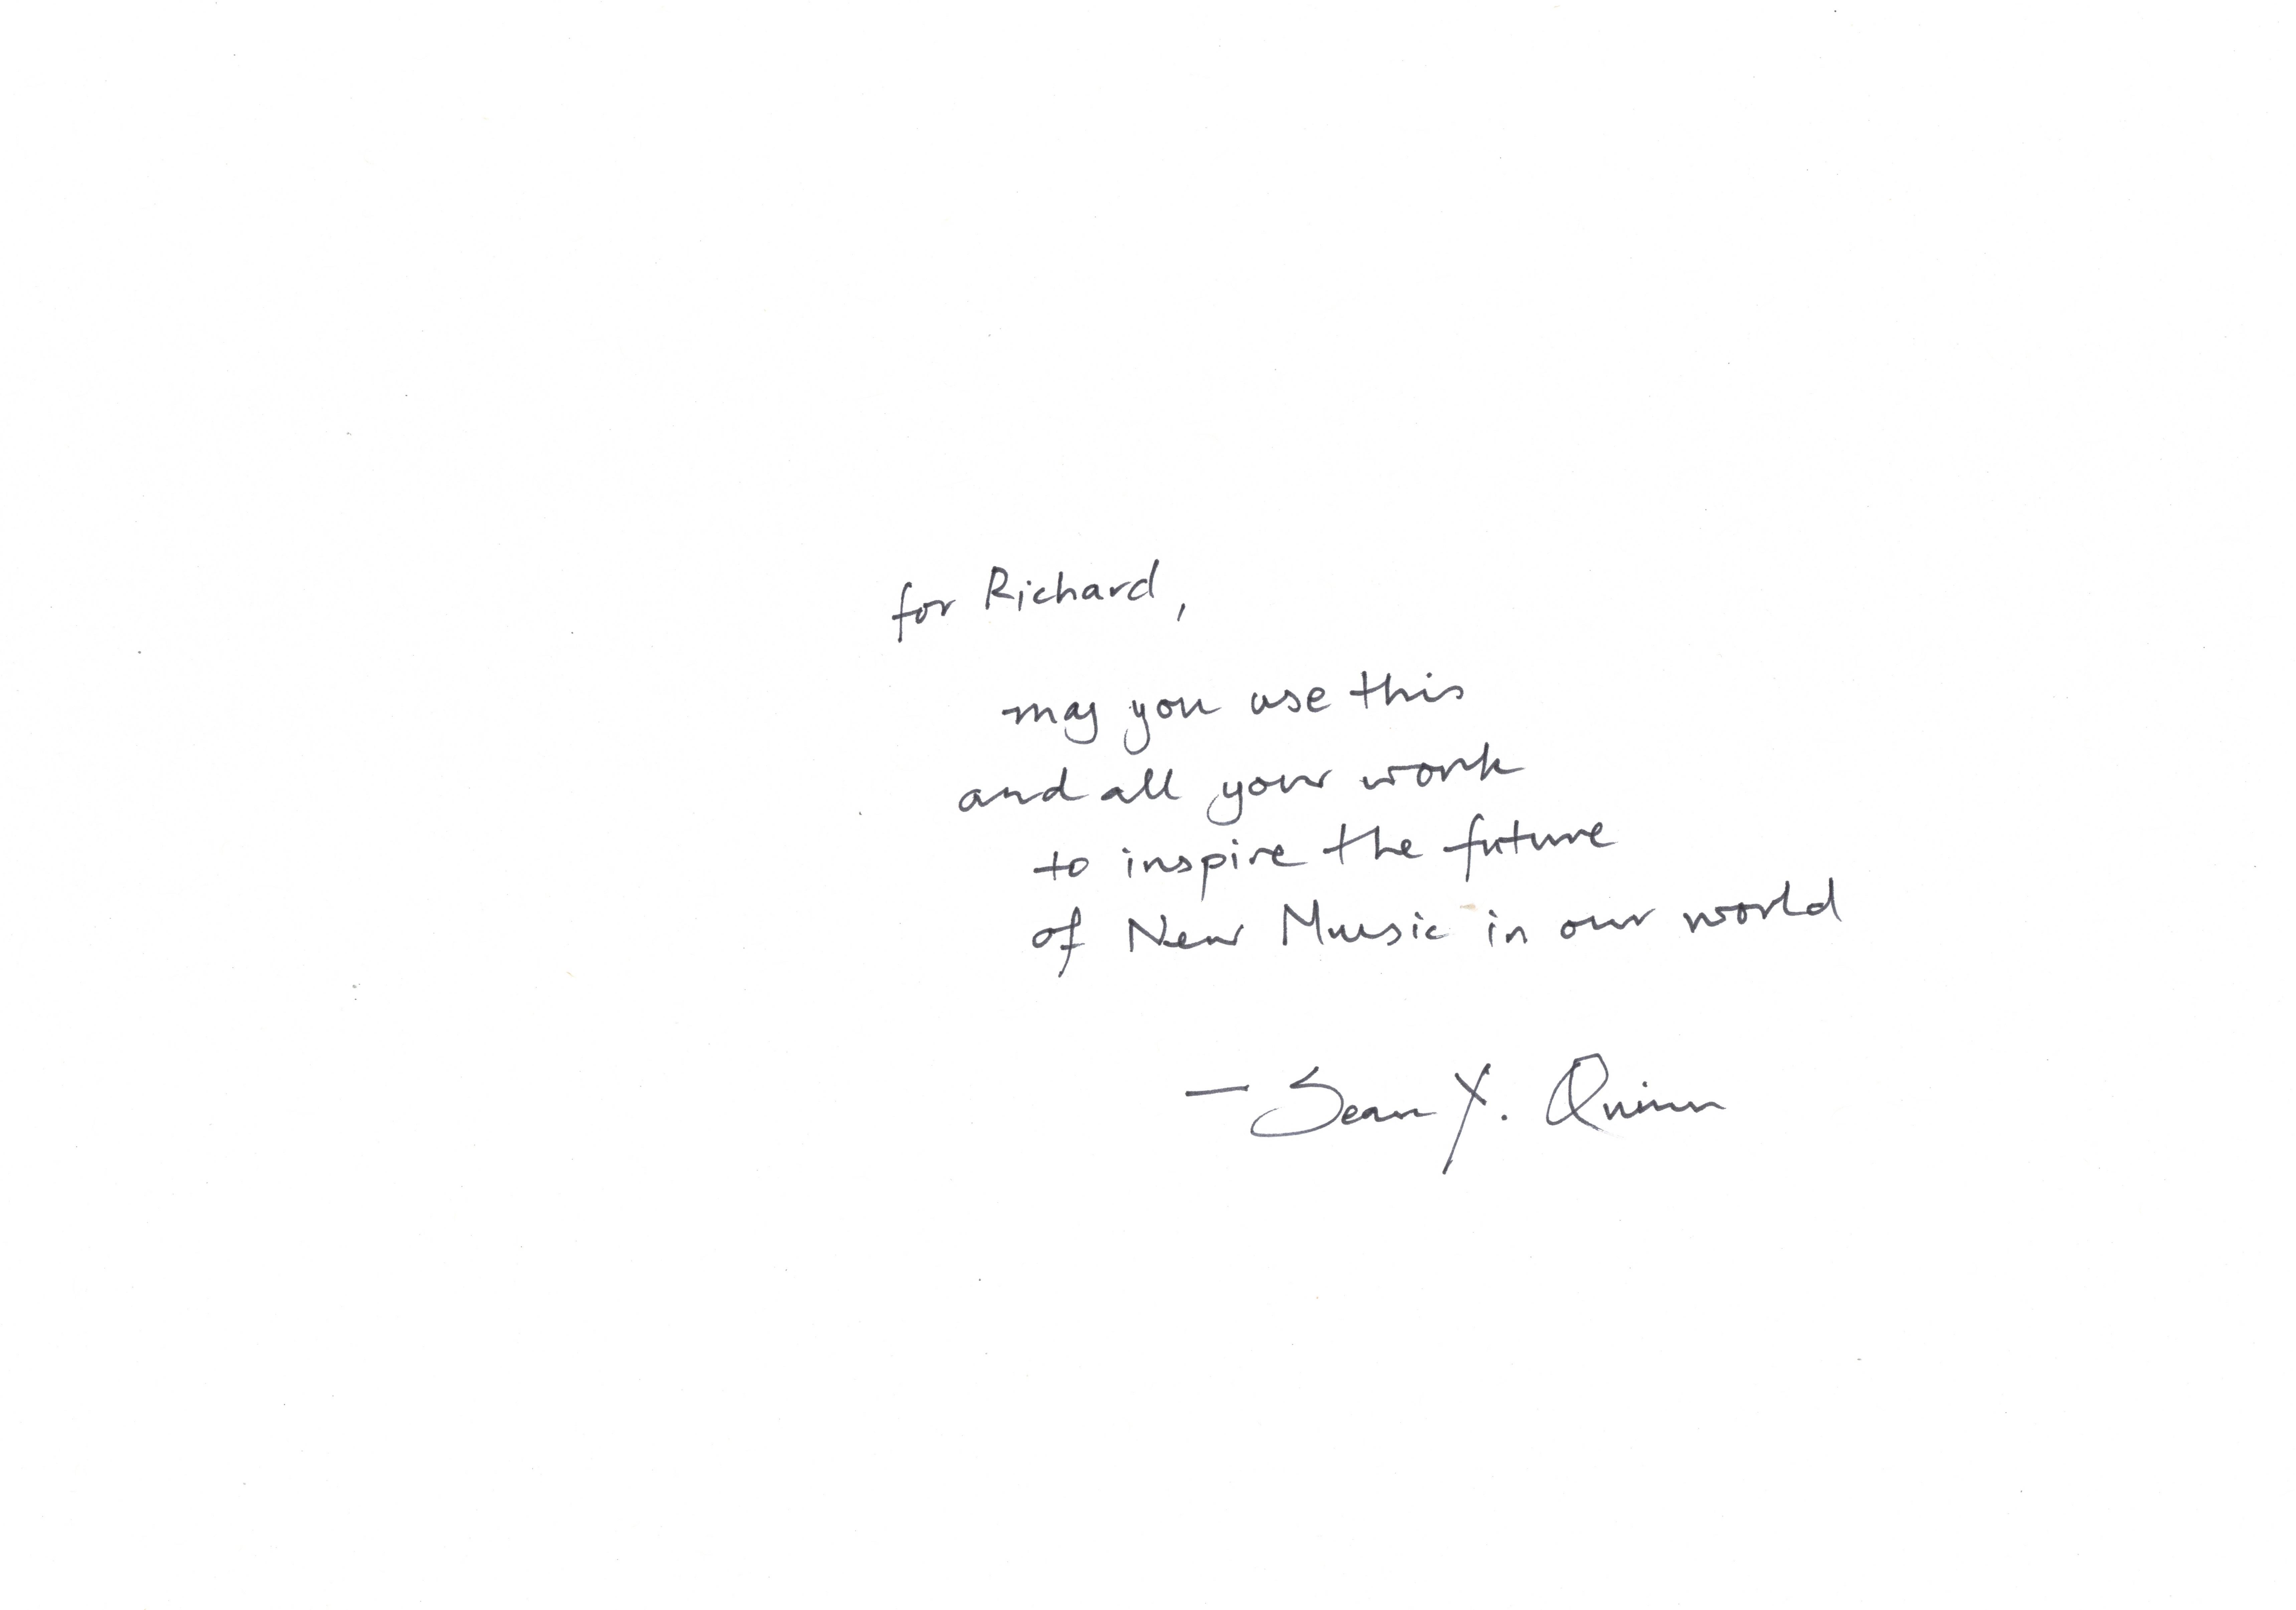 for Richard,
may you use this
and all your work
to inspire the future
of New Music in our world
— Sean Y. Quinn